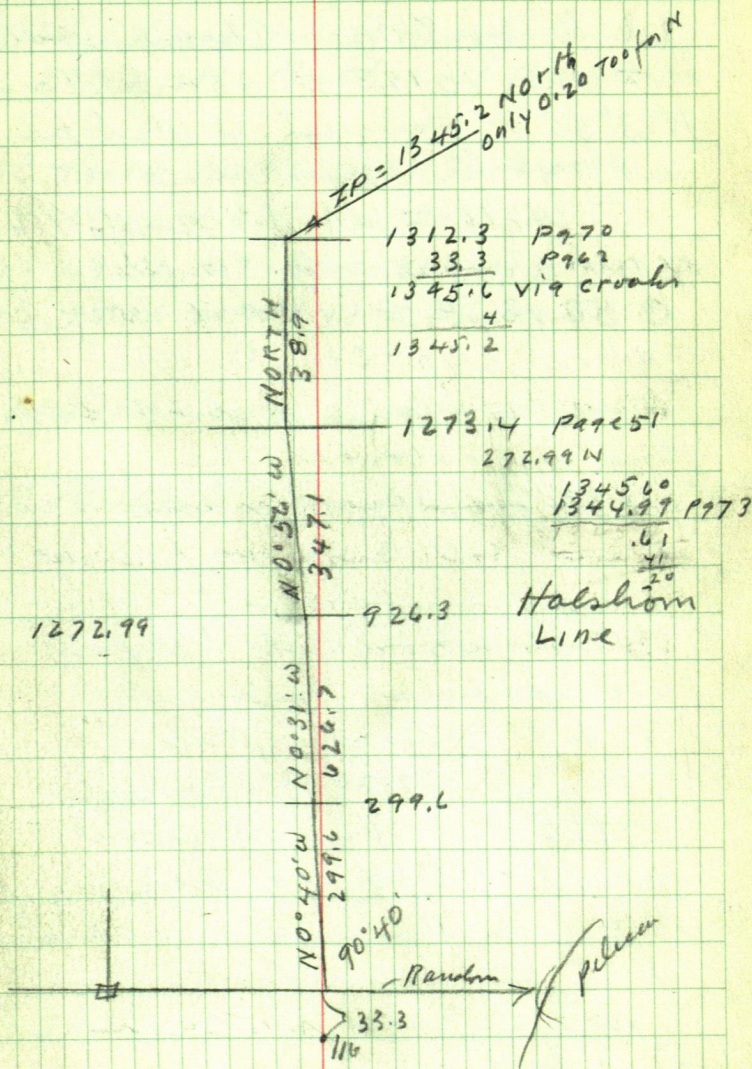 IP = 1345.2 North
only 0.20 Too far N
1312.3 Pg 70
33.3 Pg 62
1345.6 via crooks
4
1345.2
NORTH
38.9
1273.4 Page 51
272.99 N
1345 60
1344.99 Pg 73
.61
41
20
N0°56'W
347.1
926.3
Holstrom
Line
1272.99
N0°31'W
626.7
299.6
N0°40'W
299.6
90°40'
Random
33.3
1/16